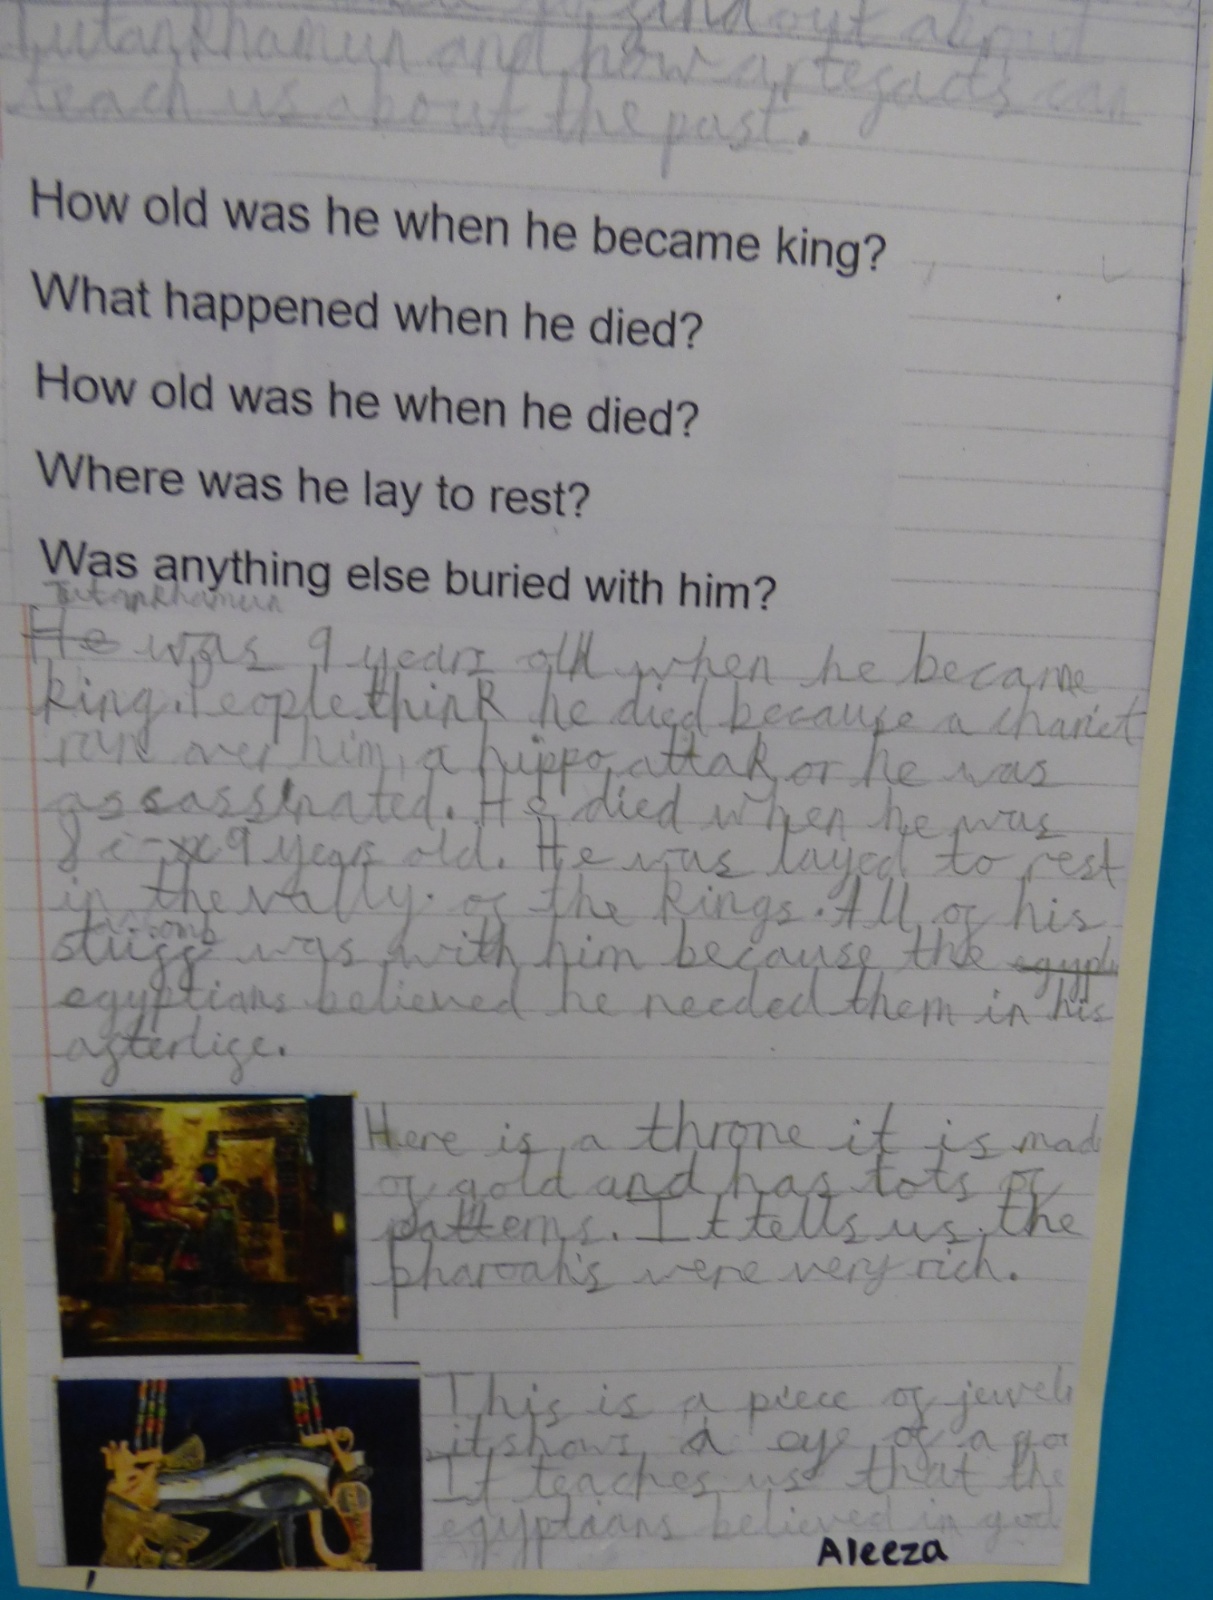 find out about
Tutankhamun and how artefacts can
teach us about the past.
How old was he when he became king?
What happened when he died?
How old was he when he died?
Where was he lay to rest?
Was anything else buried with him?
Tutankhamun
He was 9 years old when he became
king. People think he died because a chariot
run over him, a hippo attak or he was
assassinated. He died when he was
9 years old. He was layed to rest
in the vally. of the kings. All of his
stuff was with him because the egypti
egyptians believed he needed them in his
afterlife.
Here is a throne it is mad
of gold and has lots of
patterns. It tells us the
pharoah's were very rich.
This is a piece of jewel
it shows a eye of a go
It teaches us that the
egyptians believed in god
Aleeza